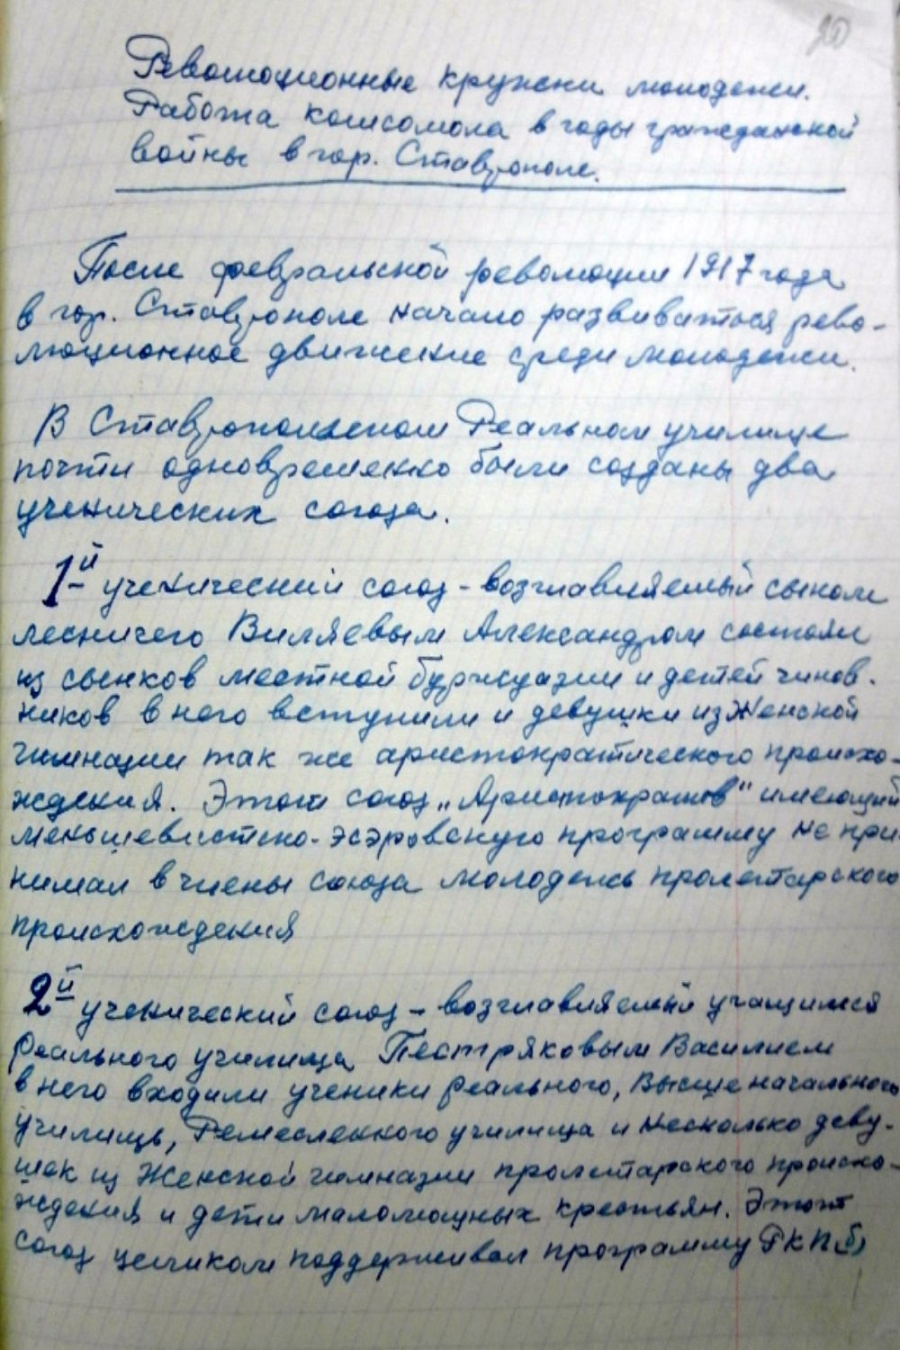 20
Революционные кружки молодежи.
Работа комсомола в годы гражданской
войны в гор. Ставрополе.
После февральской революции 1917 года
в гор. Ставрополе начало развиваться рево-
люционное движение среди молодежи.
В Ставропольском Реальном училище
почти одновременно были созданы два
ученических союза.
1-й ученический союз - возглавляемый сыном
лесничего Виляевым Александром состоял
из сынков местной буржуазии и детей чинов-
ников в него вступили и девушки из Женской
гимнации так же аристократического происхо-
ждения. Этот союз „Аристократов" имеющий
меньшевистско-эсэровскую программу не при
нимал в члены союза молодежь пролетарского
происхождения
2й ученический союз - возглавляемый учащимся
реального училища Пестряковым Василием
в него входили ученики реального, Высше начального
училищ, Ремесленного училища и несколько деву-
шек из Женской гимназии пролетарского происхо-
ждения и дети маломощных крестьян. Этот
союз целиком поддерживал программу РКП(б)